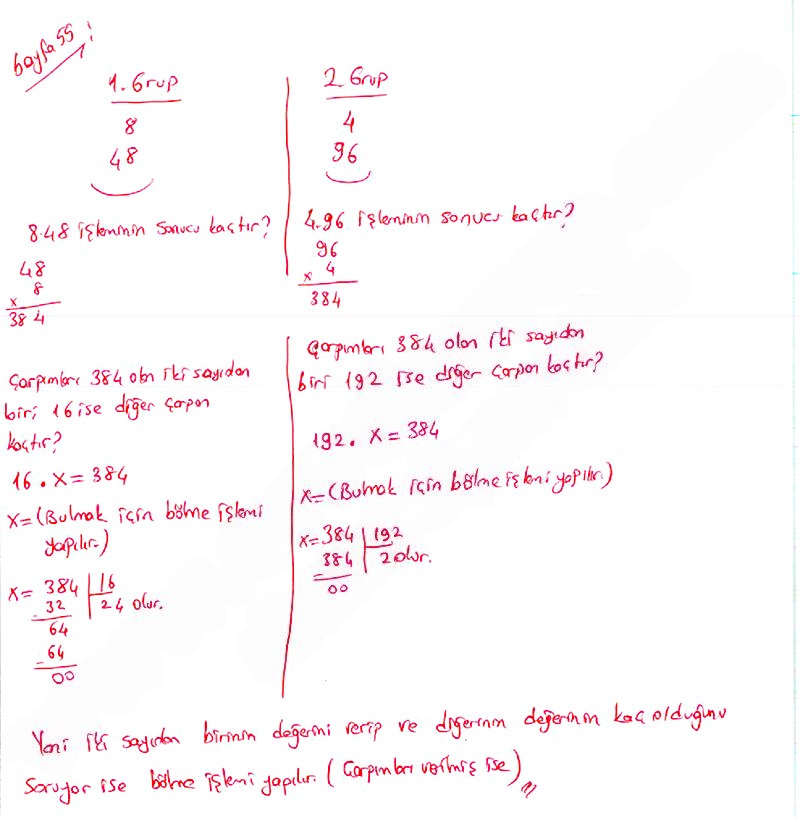 Sayfa 55!
1. Grup
8
48
8.48 işleminin sonucu kaçtır?
48
x 8
384
Çarpımları 384 olan iki sayıdan
biri 16 ise diğer çarpan
kaçtır?
16 . x = 384
x = (Bulmak için bölme işlemi
yapılır.)
x = 384 | 16
- 32 24 olur.
64
- 64
00
2. Grup
4
96
4.96 işleminin sonucu kaçtır?
96
x 4
384
Çarpımları 384 olan iki sayıdan
biri 192 ise diğer çarpan kaçtır?
192 . x = 384
x = (Bulmak için bölme işlemi yapılır.)
x = 384 | 192
- 384 2 olur.
00
Yani iki sayıdan birinin değerini verip ve diğerinin değerinin kaç olduğunu
soruyor ise bölme işlemi yapılır. (Çarpımları verilmiş ise)